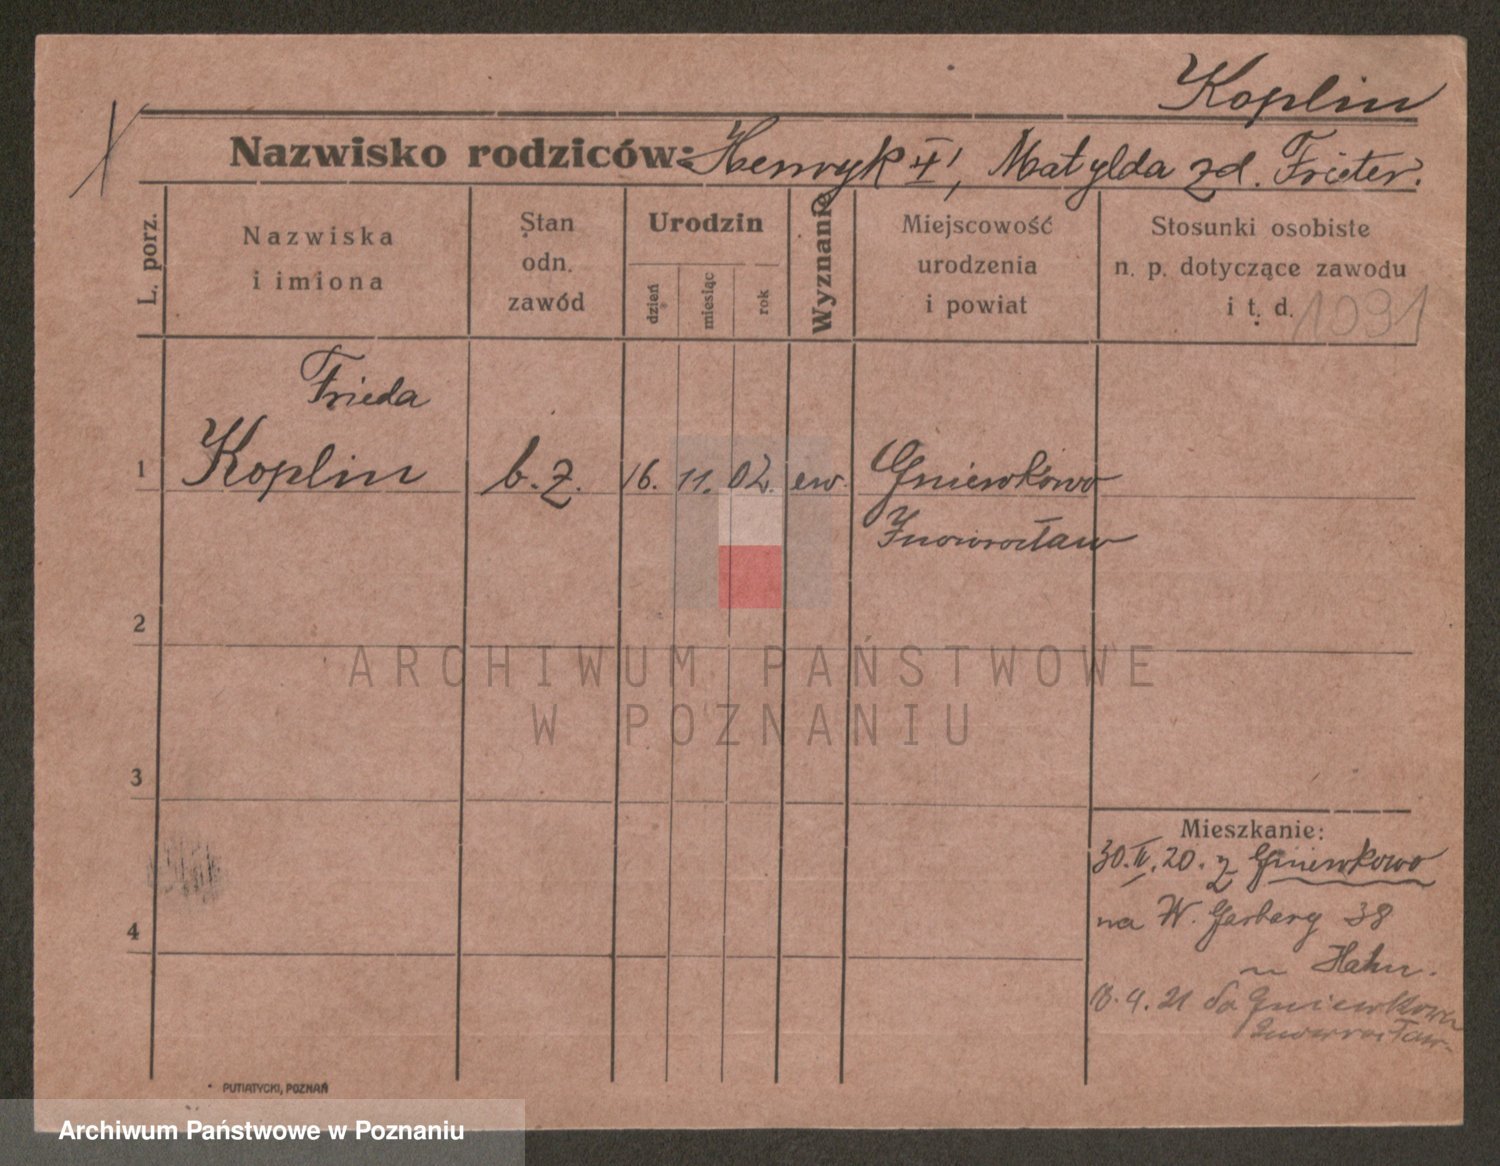 Koplin
Nazwisko rodziców: Henryk, Matylda zd. Frieter.
L. porz.
Nazwiska
i imiona
Stan
odn.
zawód
Urodzin
dzień
miesiąc
rok
Wyznanie
Miejscowość
urodzenia
i powiat
Stosunki osobiste
n. p. dotyczące zawodu
i t. d.
1031
Frieda
1 Koplin b.z. 16. 11. 02. ew. Gniewkowo
Inowrocław
2
ARCHIWUM PAŃSTWOWE
W POZNANIU
3
Mieszkanie:
30.II.20. z Gniewkowo
na W. Garbary 38
4
u Hahn.
13.4.21 do Gniewkowa
Inowrocław
PUTIATYCKI, POZNAŃ
Archiwum Państwowe w Poznaniu